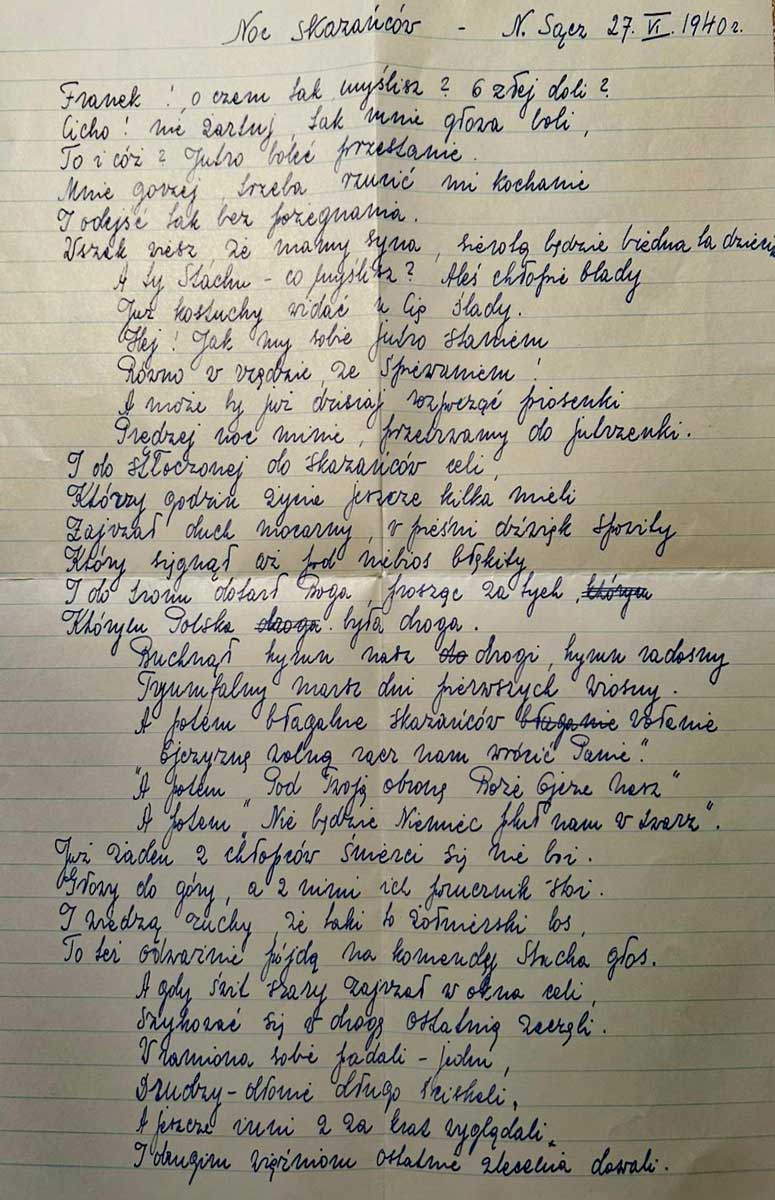 Noc Skazańców - N. Sącz 27. VI. 1940 r.
Franek! o czem tak myślisz? O złej doli?
Cicho! nie żartuj, tak mnie głowa boli,
To i cóż? Jutro boleć przestanie.
Mnie gorzej, trzeba rzucić mi kochanie
I odejść tak bez pożegnania.
Wszak wiesz że mamy syna, sierotą będzie biedna ta dziecina
A ty Stachu - co myślisz? Aleś chłopie blady
Już kostuchy widać u Cię ślady.
Hej! Jak my sobie jutro staniem
Równo w rzędzie, ze śpiewaniem!
A może by już dzisiaj rozpocząć piosenki
Prędzej noc minie, przetrwamy do jutrzenki.
I do stłoczonej do skazańców celi,
Którzy godzin życia jeszcze kilka mieli
Zajrzał duch mocarny, w pieśni dźwięk spowity
Który sięgnął aż pod niebios błękity
I do tronu dotarł Boga, prosząc za tych, którym
Którym Polska droga była droga.
Buchnął hymn nasz do drogi, hymn radosny
Tryumfalny marsz dni pierwszych wiosny.
A potem błagalne skazańców błaganie wołanie
Ojczyznę wolną racz nam wrócić Panie".
"A potem "Pod Twoją obronę Boże Ojcze nasz"
A potem "Nie będzie Niemiec pluł nam w twarz".
Już żaden z chłopców śmierci się nie boi.
Głowy do góry, a z nimi ich porucznik stoi.
I wiedzą zuchy, że taki to żołnierski los,
To też odważnie pójdą na komendę Stacha głos.
A gdy świt szary zajrzał w okna celi,
Szykować się w drogę ostatnią zaczęli.
W ramiona sobie padali - jedni,
Drudzy - dłonie długo ściskali,
A jeszcze inni z za krat wyglądali,
I drugim więźniom ostatnie zlecenia dawali.